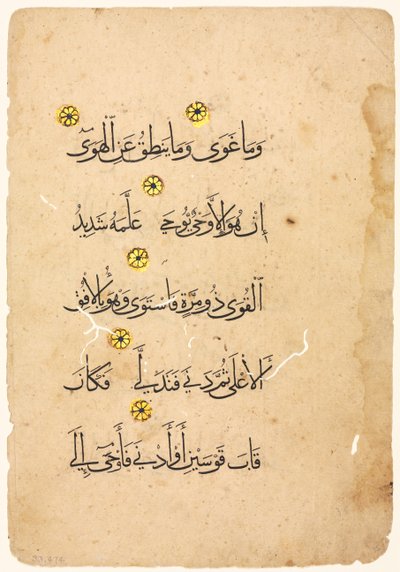 وَمَا غَوَى وَمَا يَنطِقُ عَنِ الْهَوَىٓ
إِنْ هُوَ إِلَّا وَحْيٌ يُوحَى عَلَّمَهُ شَدِيدُ
الْقُوَى ذُو مِرَّةٍ فَاسْتَوَى وَهُوَ بِالْأُفُقِ
الْأَعْلَى ثُمَّ دَنَى فَتَدَلَّى فَكَانَ
قَابَ قَوْسَيْنِ أَوْ أَدْنَى فَأَوْحَىٓ إِلَى